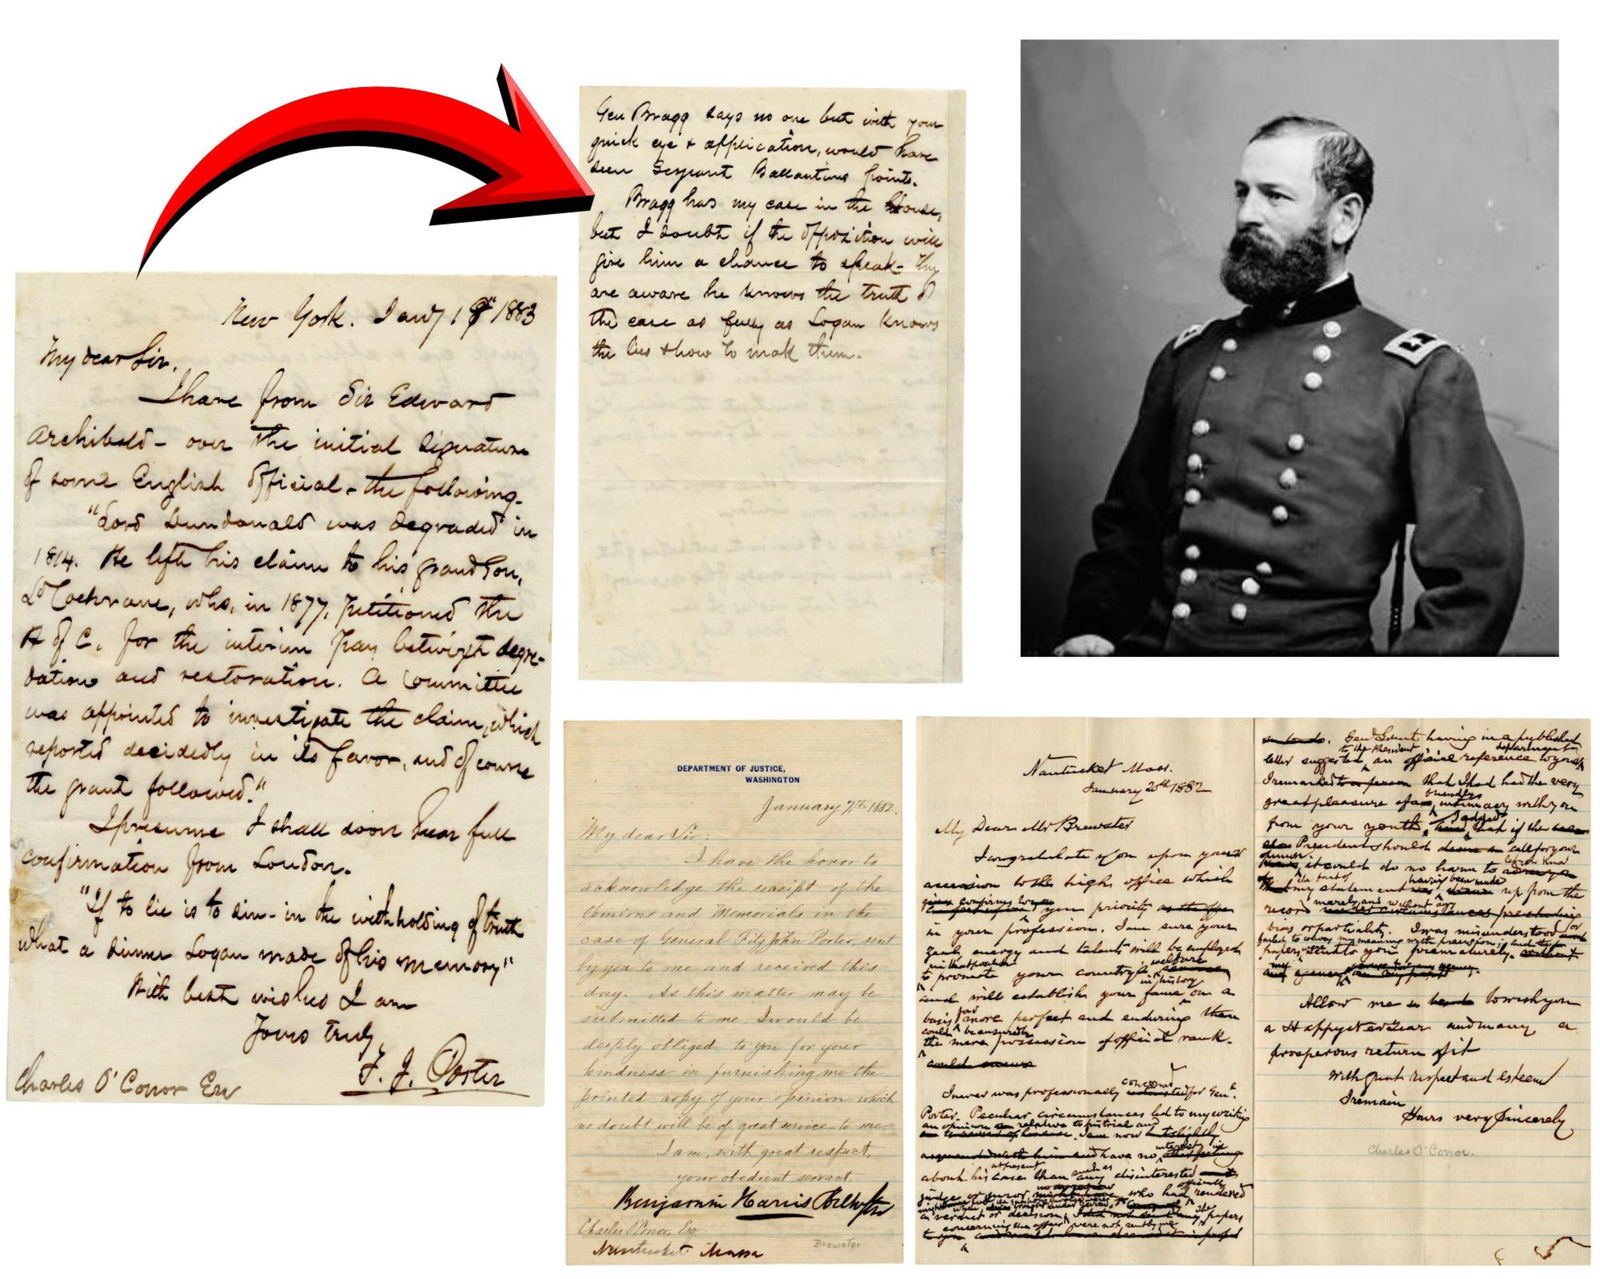 New York. Jany 18th 1883
My dear Sir,
I have from Sir Edward
Archibald - over the initial signature
of some English official - the following.
"Lord Dundonald was degraded in
1814. He left his claim to his grand son,
Ld Cochrane, who, in 1877, petitioned the
H of C. for the interim pay betwixt degre-
dation and restoration. A Committee
was appointed to investigate the claim, which
reported decidedly in its favor, and of course
the grant followed."
I presume I shall soon hear full
confirmation from London.
"If to lie is to sin - in the withholding of truth
what a dinner Logan made of his memory"
With best wishes I am
Yours truly,
F. J. Porter
Charles O'Conor Esq
Gen Bragg says no one but with your
quick eye & application, would have
seen Serjeant Ballantine points.
Bragg has my case in the House,
but I doubt if the opposition will
give him a chance to speak - They
are aware he knows the truth of
the case as fully as Logan knows
the lies & how to make them.
DEPARTMENT OF JUSTICE,
WASHINGTON
January 7th 1882.
My dear Sir:
I have the honor to
acknowledge the receipt of the
Opinions and Memorials in the
case of General Fitz John Porter, sent
by you to me and received this
day. As this matter may be
submitted to me, I would be
deeply obliged to you for your
kindness in furnishing me the
printed copy of your opinion which
no doubt will be of great service to me.
I am, with great respect,
your obedient servant,
Benjamin Harris Brewster
Charles O'Conor, Esq.
Nantucket Mass
Brewster
Nantucket Mass.
January 20th 1882
My Dear Mr Brewster
I congratulate you upon your
accession to the high office which
confirms to you your priority
in your profession. I am sure your
zeal, energy and talent will be employed
to promote your country's welfare
and will establish your fame in history on a
basis far more perfect and enduring than
the mere possession of official rank.
I never was professionally concerned for Gen.
Porter. Peculiar circumstances led to my writing
an opinion relative to his trial and
and have no interest in
about his case than any disinterested
who had rendered
a verdict or decision. The papers
concerning the affair were not sent by me
to you
Genl Grant having in a published
letter suggested to the President an official reference to your department
I remarked that I had had the very
great pleasure of friendly intimacy with you
from your youth, & I added that if the
President should call for your
it could do no harm to
my statement up from the
record merely and without any
bias or partiality. I was misunderstood
papers were sent to you prematurely.
Allow me to wish you
a Happy New Year and many a
prosperous return of it
With great respect and esteem
I remain
Yours very Sincerely
Charles O'Conor.